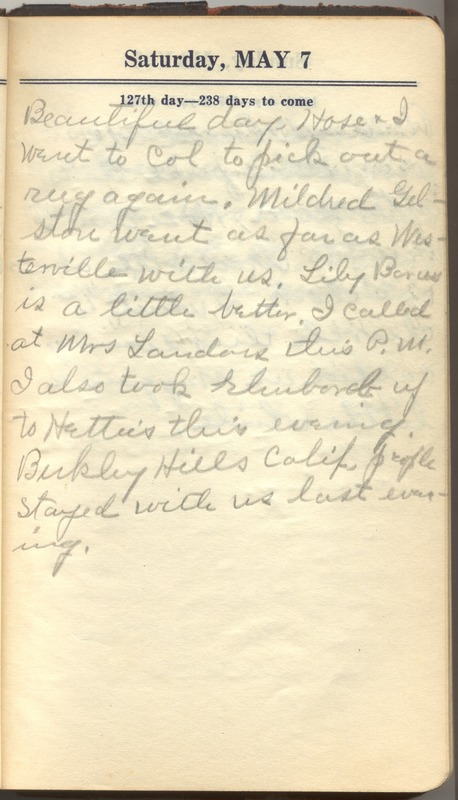 Saturday, MAY 7
127th day—238 days to come
Beautiful day. Hose & I
went to Col to pick out a
rug again. Mildred Gel-
ston went as far as Wes-
terville with us. Lily
is a little better. I called
at Mrs Landors this P.M.
I also took up
to Hettie's this evening.
Berkley Hills Calif. people
stayed with us last even-
ing.